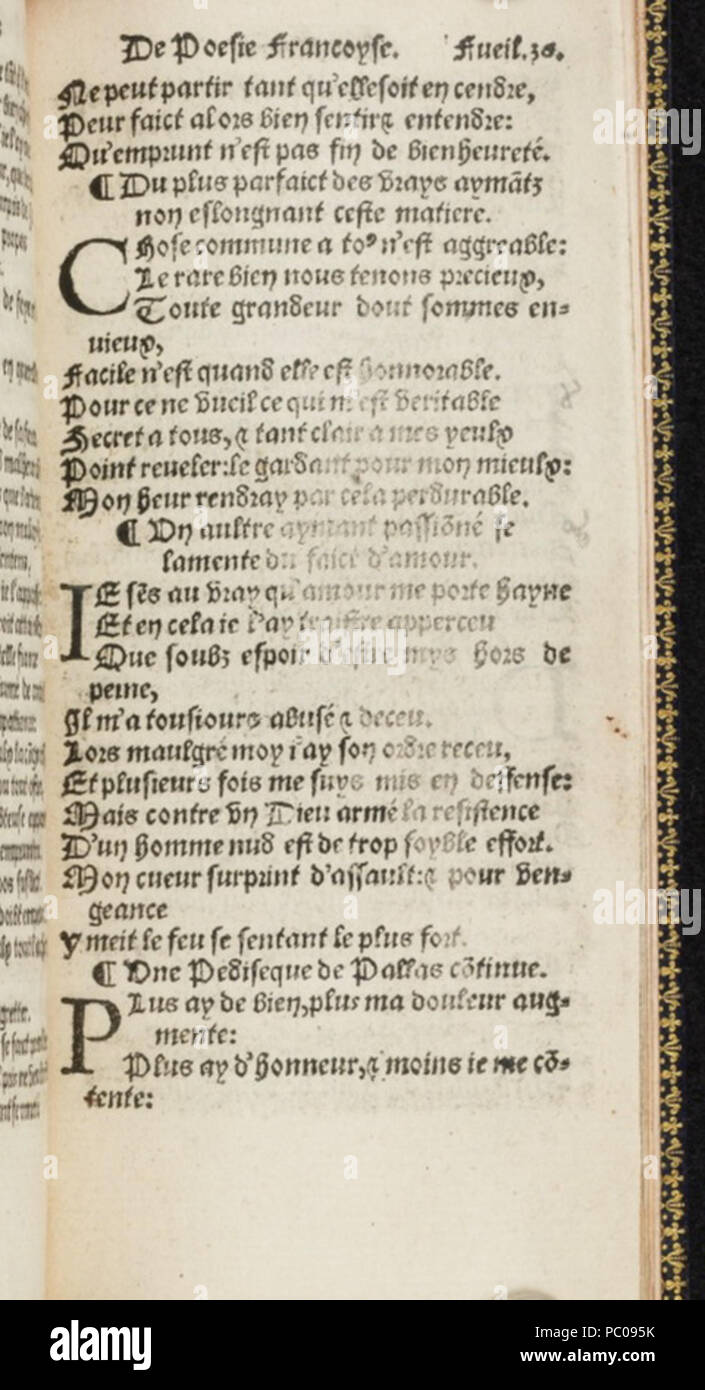 De Poesie Francoyse. Fueil.30.
Ne peut partir tant qu'elle soit en cendre,
Peur faict alors bien sentir⁊ entendre:
Qu'emprunt n'est pas fin de bienheureté.
¶ Du plus parfaict des vrays aymãtz
non eslongnant ceste matiere.
CHose commune a to⁹ n'est aggreable:
Le rare bien nous tenons precieux,
Toute grandeur dont sommes en-
uieux,
Facile n'est quand elle est honnorable.
Pour ce ne vueil ce qui m'est veritable
Secret a tous,⁊ tant clair a mes yeulx
Point reueler:le gardant pour mon mieulx:
Mon heur rendray par cela perdurable.
¶ Vn aultre aymant passiõné se
lamente du faict d'amour.
IE sẽs au vray qu'amour me porte hayne
Et en cela ie l'ay traistre apperceu
Que soubz espoir d'estre mys hors de
peine,
Il m'a tousiours abusé ⁊ deceu.
Lors maulgré moy i'ay son ordre receu,
Et plusieurs fois me suys mis en deffense:
Mais contre vn Dieu armé la resistence
D'un homme nud est de trop foyble effort.
Mon cueur surprint d'assault:⁊ pour ven-
geance
y meit le feu se sentant le plus fort.
¶ Vne Pediseque de Pallas cõtinue.
PLus ay de bien,plus ma douleur aug-
mente:
Plus ay d'honneur,⁊ moins ie me cõ-
tente:
alamy
PC095K
www.alamy.com